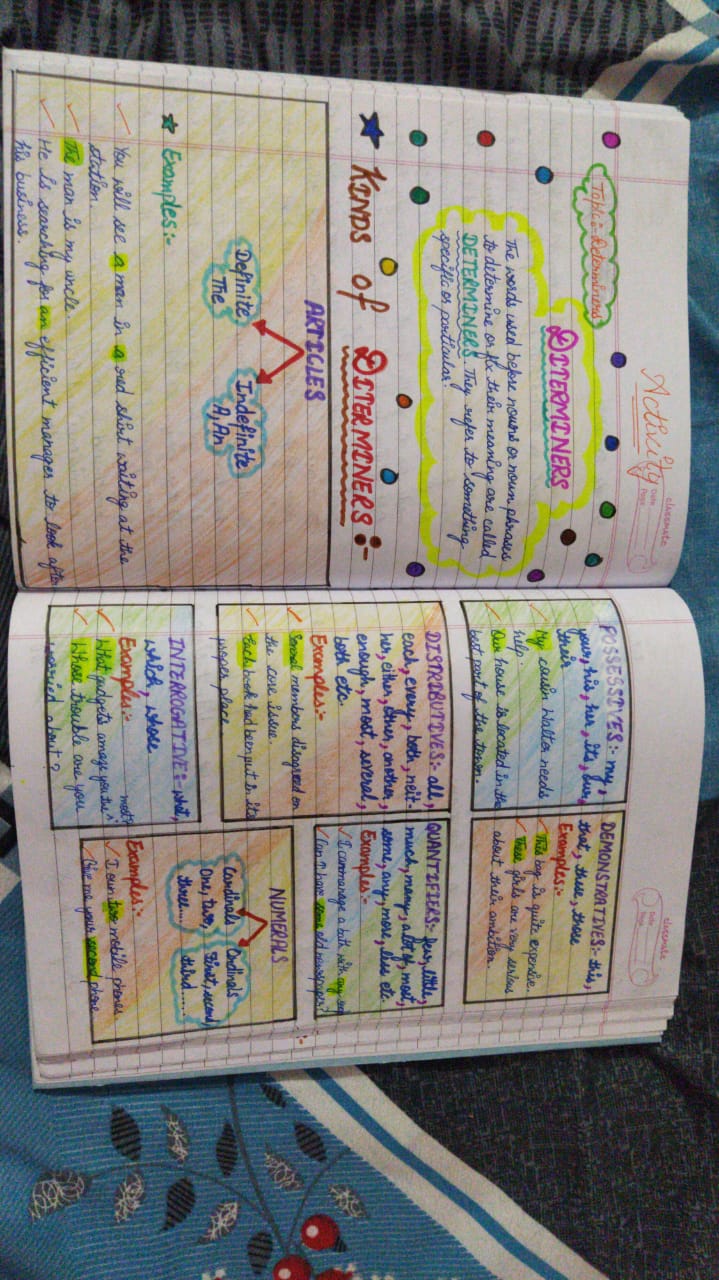 classmate
Date
Page
Activity
Topic:-Determiners
DITERMINERS
The words used before nouns or noun phrases
to determine or fix their meaning are called
DETERMINERS. They refer to something
specific or particular.
KINDS of DITERMINERS :-
ARTICLES
Definite
The
Indefinite
A, An
Examples:-
You will see a man in a red shirt waiting at the
station.
The man is my uncle.
He is searching for an efficient manager to look after
his business.
classmate
Date
Page
POSSESSIVES:- my,
your, his, her, its, our,
their
My cousin Walter needs
help.
Our house is located in the
best part of the town.
DEMONSTRATIVES:- this,
that, these, those
Examples:-
This bag is quite expensive.
These girls are very serious
about their ambition.
DISTRIBUTIVES:- all,
each, every, both, neit-
her, either, other, another,
enough, most, several,
both etc.
Examples:-
Several members disagreed on
the core issue.
Each book had been put in its
proper place
QUANTIFIERS:- few, little,
much, many, a lot of, most,
some, any, more, less etc.
Examples:-
I can manage a bath with any soap
Can I have some old newspaper?
INTERROGATIVE:- what,
which, whose
Examples:-
most?
What gadgets amaze you the
Whose trouble are you
worried about?
NUMERALS
Cardinals
One, two,
three....
Ordinals
first, second,
third.....
Examples:-
I own two mobile phones
Give me your second phone